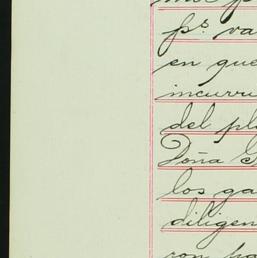 ps. va
en que
incurru
del pl
Doña G
los ga
diligen
con pa